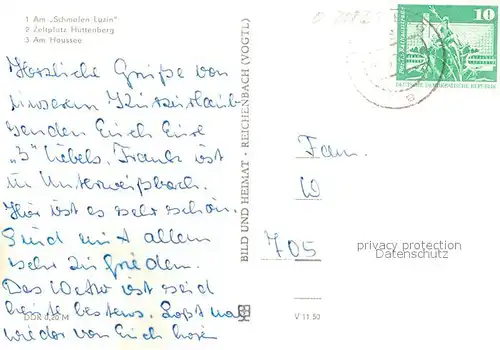 1 Am „Schmalen Luzin"
2 Zeltplatz Hüttenberg
3 Am Haussee
Herzliche Grüße von
unserem Kurzurlaub
senden Euch Eure
„3" Nebels. Frank ist
in Unterweißbach.
Hier ist es sehr schön.
Sind mit allem
sehr zufrieden.
Das Wetter ist seid
heute bestens. Laßt mal
wieder von Euch hören
DDR 0,20 M
BILD UND HEIMAT · REICHENBACH (VOGTL)
V 11 50
10
DEUTSCHE DEMOKRATISCHE REPUBLIK
Fam.
W
705
privacy protection
Datenschutz